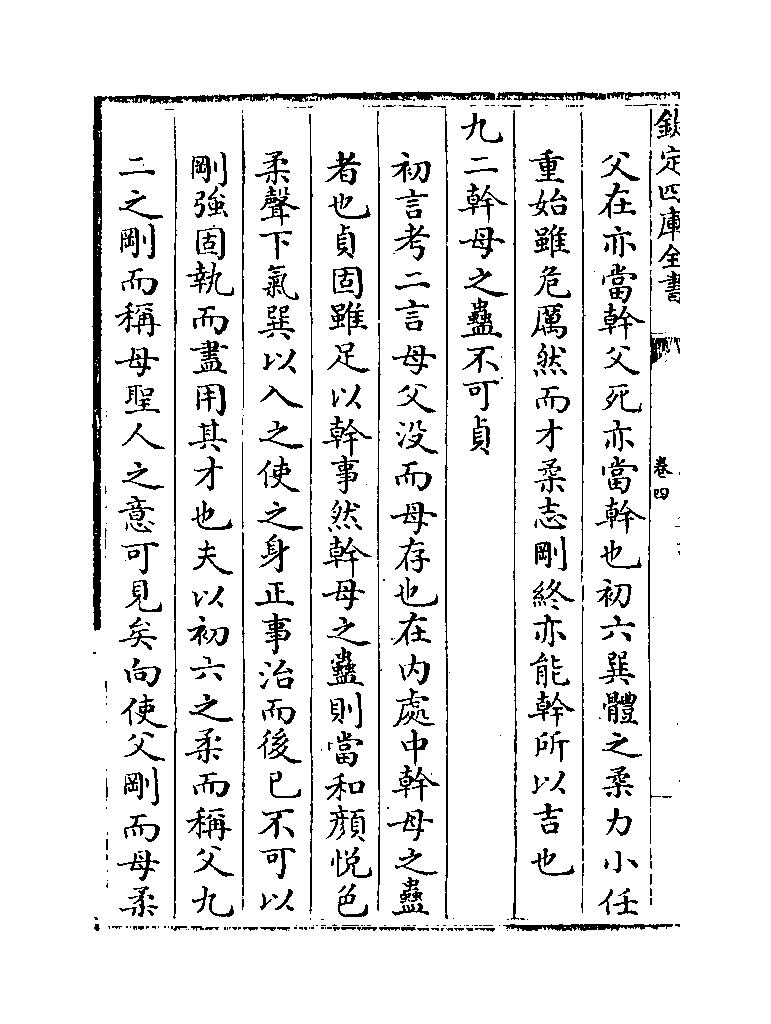 欽定四庫全書
卷四
父在亦當幹父死亦當幹也初六巽體之柔力小任
重始雖危厲然而才柔志剛終亦能幹所以吉也
九二幹母之蠱不可貞
初言考二言母父没而母存也在内處中幹母之蠱
者也貞固雖足以幹事然幹母之蠱則當和顔悅色
柔聲下氣巽以入之使之身正事治而後已不可以
剛強固執而盡用其才也夫以初六之柔而稱父九
二之剛而稱母聖人之意可見矣向使父剛而母柔